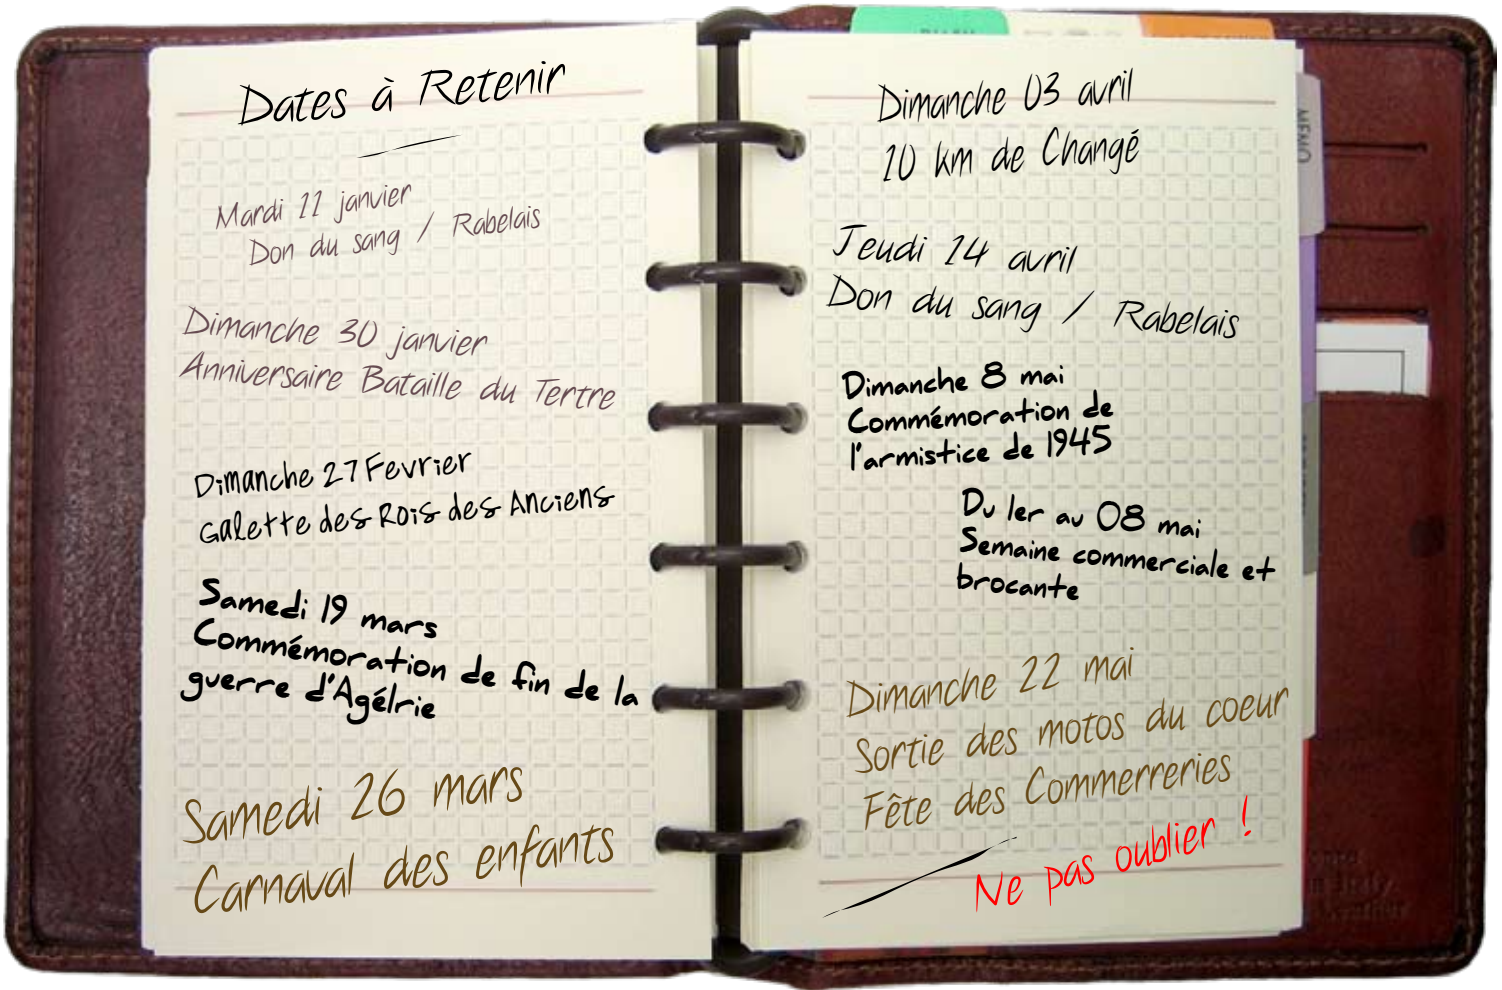 Dates à Retenir
Mardi 11 janvier
Don du sang / Rabelais
Dimanche 30 janvier
Anniversaire Bataille du Tertre
Dimanche 27 Fevrier
Galette des Rois des Anciens
Samedi 19 mars
Commémoration de fin de la
guerre d'Agélrie
Samedi 26 mars
Carnaval des enfants
Dimanche 03 avril
10 km de Changé
Jeudi 14 avril
Don du sang / Rabelais
Dimanche 8 mai
Commémoration de
l'armistice de 1945
Du 1er au 08 mai
Semaine commerciale et
brocante
Dimanche 22 mai
Sortie des motos du coeur
Fête des Commerreries
Ne pas oublier !
MEMO